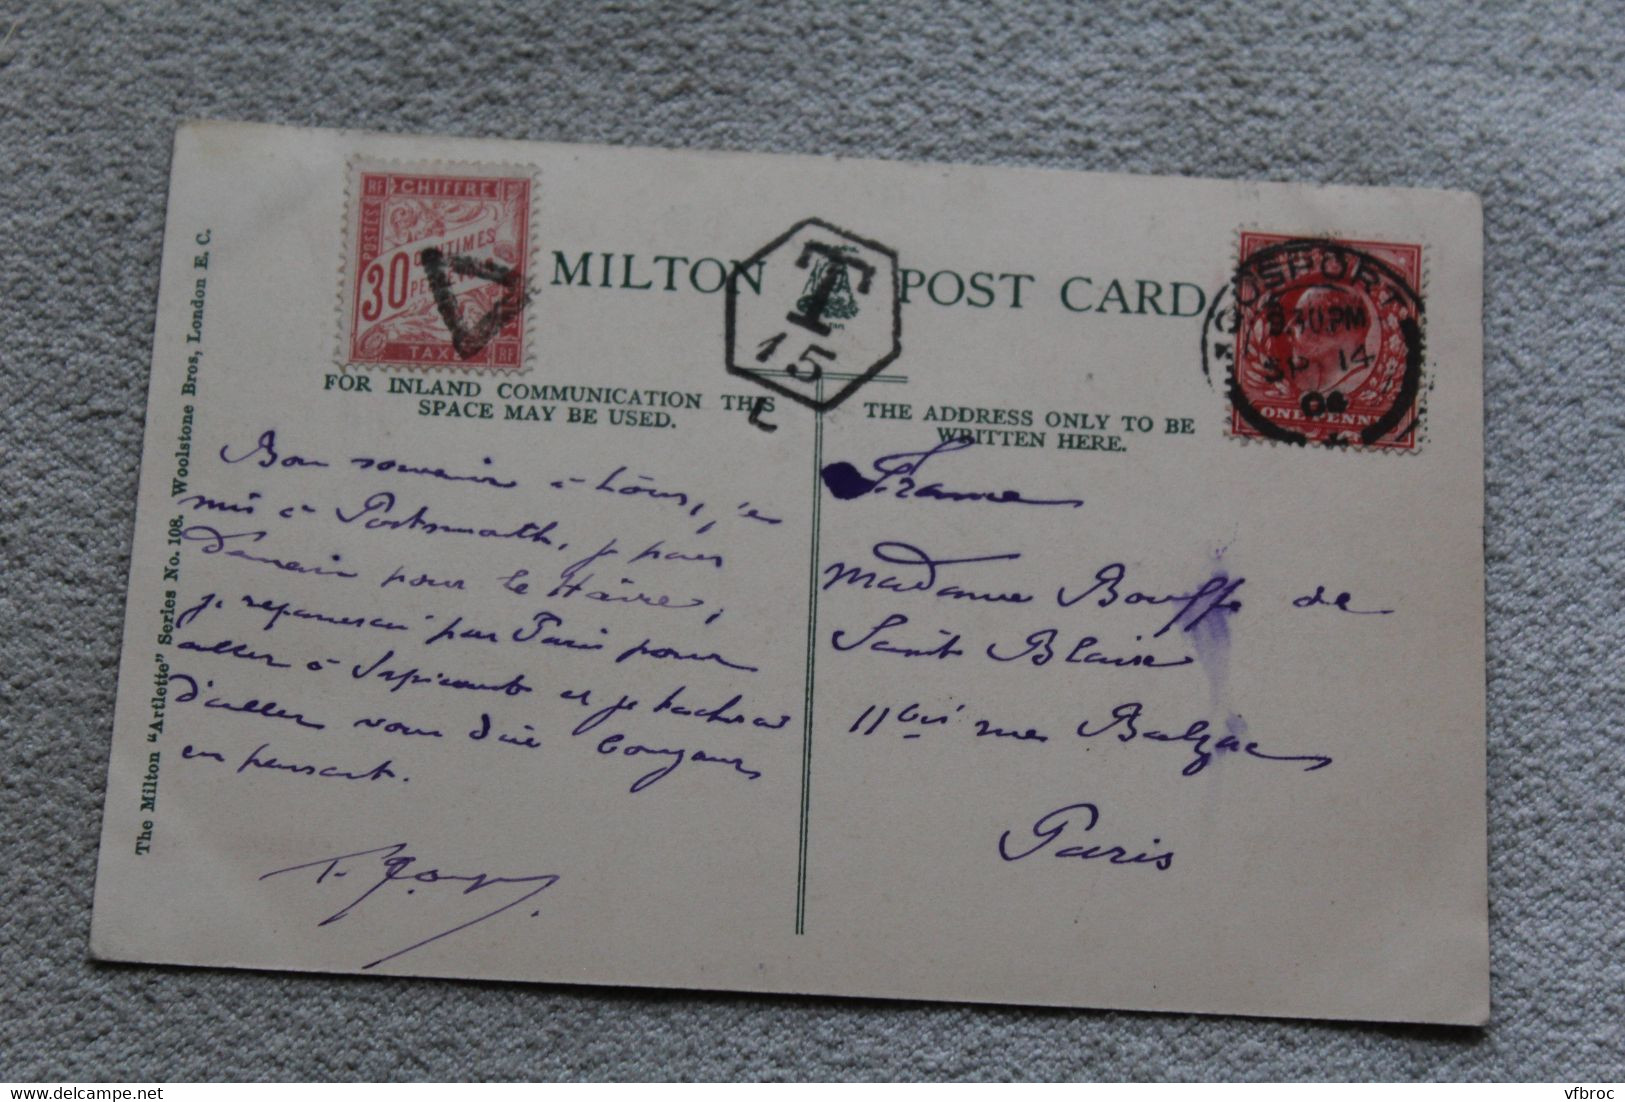 RF CHIFFRE
POSTES
30 CENTIMES
TAXE RF
MILTON POST CARD
T
15
L
GOSPORT
9.30 PM
SP 14
04
ONE PENNY
FOR INLAND COMMUNICATION THIS
SPACE MAY BE USED.
THE ADDRESS ONLY TO BE
WRITTEN HERE.
The Milton "Artlette" Series No. 108. Woolstone Bros, London E. C.
Bon souvenir à tous, je
suis à Portsmouth, je pars
demain pour le Hâvre,
je repasserai par Paris pour
aller à et je tacherai
d'aller vous dire bonjour
en passant.
France
Madame Bouffe de
Saint Blaise
11bis rue Balzac
Paris
vfbroc